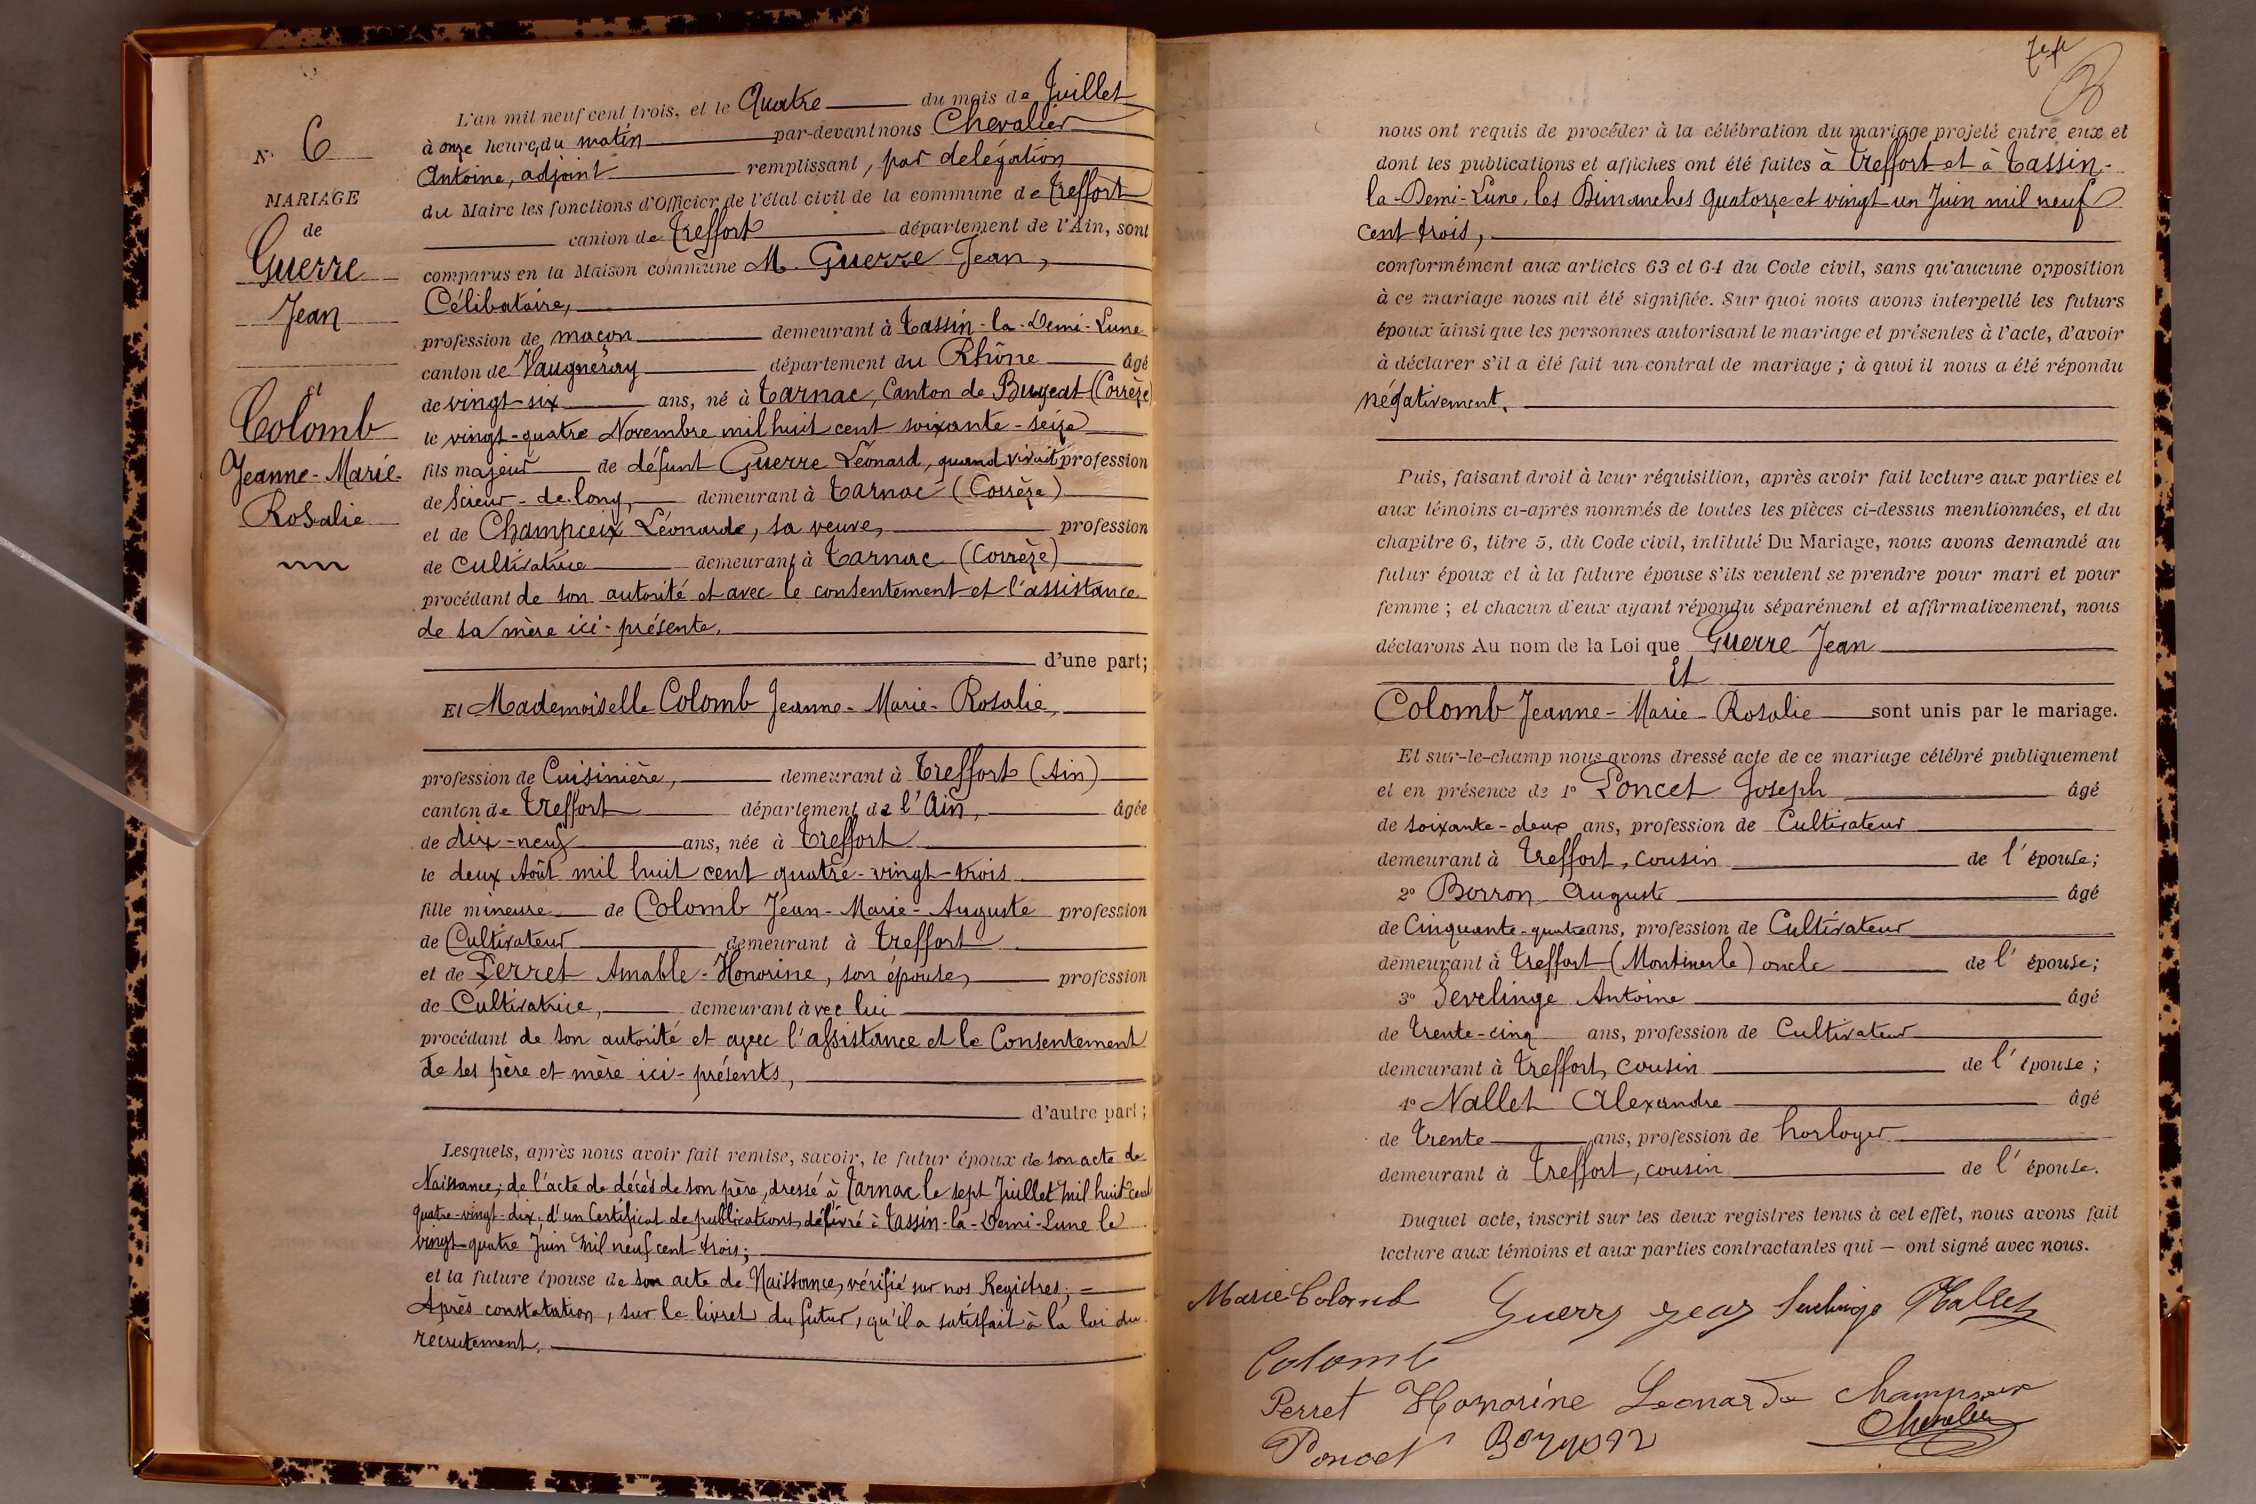 N° 6
MARIAGE
de
Guerre
Jean
et
Colomb
Jeanne-Marie-
Rosalie
L'an mil neuf cent trois, et le Quatre du mois de Juillet
à onze heures du matin par-devant nous Chevalier
Antoine, adjoint remplissant, par délégation
du Maire les fonctions d'Officier de l'état civil de la commune de Treffort
canton de Treffort département de l'Ain, sont
comparus en la Maison commune M. Guerre Jean,
Célibataire,
profession de maçon demeurant à Tassin-la-Demi-Lune
canton de Vaugneray département du Rhône âgé
de vingt-six ans, né à Tarnac, Canton de Bugeat (Corrèze)
le vingt-quatre Novembre mil huit cent soixante-seize
fils majeur de défunt Guerre Léonard, quand vivait profession
de Scieur-de-long, demeurant à Tarnac (Corrèze)
et de Champceix Léonarde, sa veuve, profession
de Cultivatrice demeurant à Tarnac (Corrèze)
procédant de son autorité et avec le consentement et l'assistance
de sa mère ici-présente,
d'une part;
Et Mademoiselle Colomb Jeanne-Marie-Rosalie,
profession de Cuisinière, demeurant à Treffort (Ain)
canton de Treffort département de l'Ain, âgée
de dix-neuf ans, née à Treffort
le deux Août mil huit cent quatre-vingt-trois
fille mineure de Colomb Jean-Marie-Auguste profession
de Cultivateur demeurant à Treffort
et de Perret Amable-Honorine, son épouse, profession
de Cultivatrice, demeurant avec lui
procédant de son autorité et avec l'assistance et le Consentement
de ses père et mère ici-présents,
d'autre part;
Lesquels, après nous avoir fait remise, savoir, le futur époux de son acte de
Naissance; de l'acte de décès de son père, dressé à Tarnac le sept Juillet mil huit cent
quatre-vingt-dix; d'un Certificat de publications délivré à Tassin-la-Demi-Lune le
vingt-quatre Juin mil neuf cent trois;
et la future épouse de son acte de Naissance, vérifié sur nos Registres; =
Après constatation, sur le livret du futur, qu'il a satisfait à la loi du
recrutement.
nous ont requis de procéder à la célébration du mariage projeté entre eux et
dont les publications et affiches ont été faites à Treffort et à Tassin-
la-Demi-Lune, les Dimanches quatorze et vingt un Juin mil neuf
cent trois,
conformément aux articles 63 et 64 du Code civil, sans qu'aucune opposition
à ce mariage nous ait été signifiée. Sur quoi nous avons interpellé les futurs
époux ainsi que les personnes autorisant le mariage et présentes à l'acte, d'avoir
à déclarer s'il a été fait un contrat de mariage; à quoi il nous a été répondu
négativement.
Puis, faisant droit à leur réquisition, après avoir fait lecture aux parties et
aux témoins ci-après nommés de toutes les pièces ci-dessus mentionnées, et du
chapitre 6, titre 5, du Code civil, intitulé Du Mariage, nous avons demandé au
futur époux et à la future épouse s'ils veulent se prendre pour mari et pour
femme; et chacun d'eux ayant répondu séparément et affirmativement, nous
déclarons Au nom de la Loi que Guerre Jean
Et
Colomb Jeanne-Marie-Rosalie sont unis par le mariage.
Et sur-le-champ nous avons dressé acte de ce mariage célébré publiquement
et en présence de 1° Poncet Joseph âgé
de soixante-deux ans, profession de Cultivateur
demeurant à Treffort, cousin de l'épouse;
2° Borron Auguste âgé
de Cinquante-quatre ans, profession de Cultivateur
demeurant à Treffort (Montmerle) oncle de l'épouse;
3° Sevelinge Antoine âgé
de trente-cinq ans, profession de Cultivateur
demeurant à Treffort, cousin de l'épouse;
4° Nallet Alexandre âgé
de trente ans, profession de horloger
demeurant à Treffort, cousin de l'épouse.
Duquel acte, inscrit sur les deux registres tenus à cet effet, nous avons fait
lecture aux témoins et aux parties contractantes qui — ont signé avec nous.
Marie Colomb Guerre Jean Sevelinge Nallet
Colomb
Perret Honorine Leonarde Champseix
Chevalier
Poncet